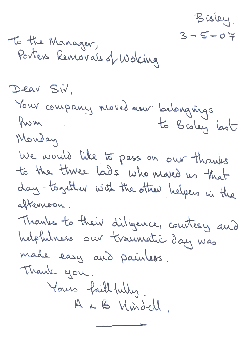 Bisley.
3-5-07
To the Manager,
Porters Removals of Woking
Dear Sir,
Your company moved our belongings
from to Bisley last
Monday
We would like to pass on our thanks
to the three lads who moved us that
day together with the other helpers in the
afternoon.
Thanks to their diligence, courtesy and
helpfulness our traumatic day was
made easy and painless.
Thank you.
Yours faithfully.
A & B